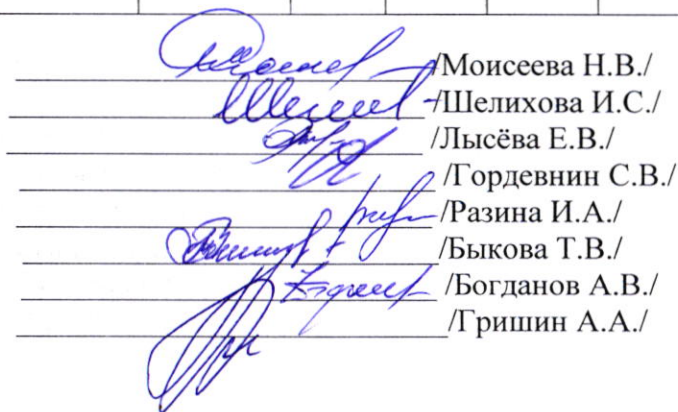 /Моисеева Н.В./
/Шелихова И.С./
/Лысёва Е.В./
/Гордевнин С.В./
/Разина И.А./
/Быкова Т.В./
/Богданов А.В./
/Гришин А.А./